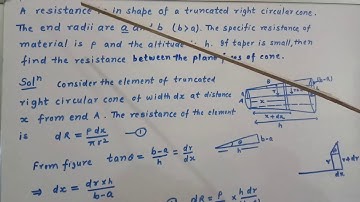 A resistance is in shape of a truncated right circular cone.
The end radii are a and b (b>a). The specific resistance of
material is ρ and the altitude is h. If taper is small, then
find the resistance between the plane faces of cone.
Solⁿ Consider the element of truncated
right circular cone of width dx at distance
x from end A. The resistance of the element
is dR = ρ dx / πr² —①
From figure tanθ = b-a / h = dr / dx
⇒ dx = dr × h / b-a
① dR = ρ × h dr
(b-a)
x
x+dx
h
θ
b-a
h
r
dx